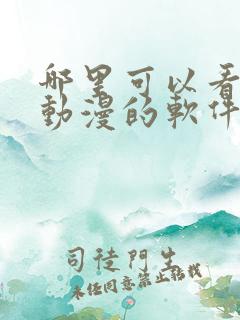 哪里可以看
動漫的軟件
司徒門生
未经同意禁止搭救